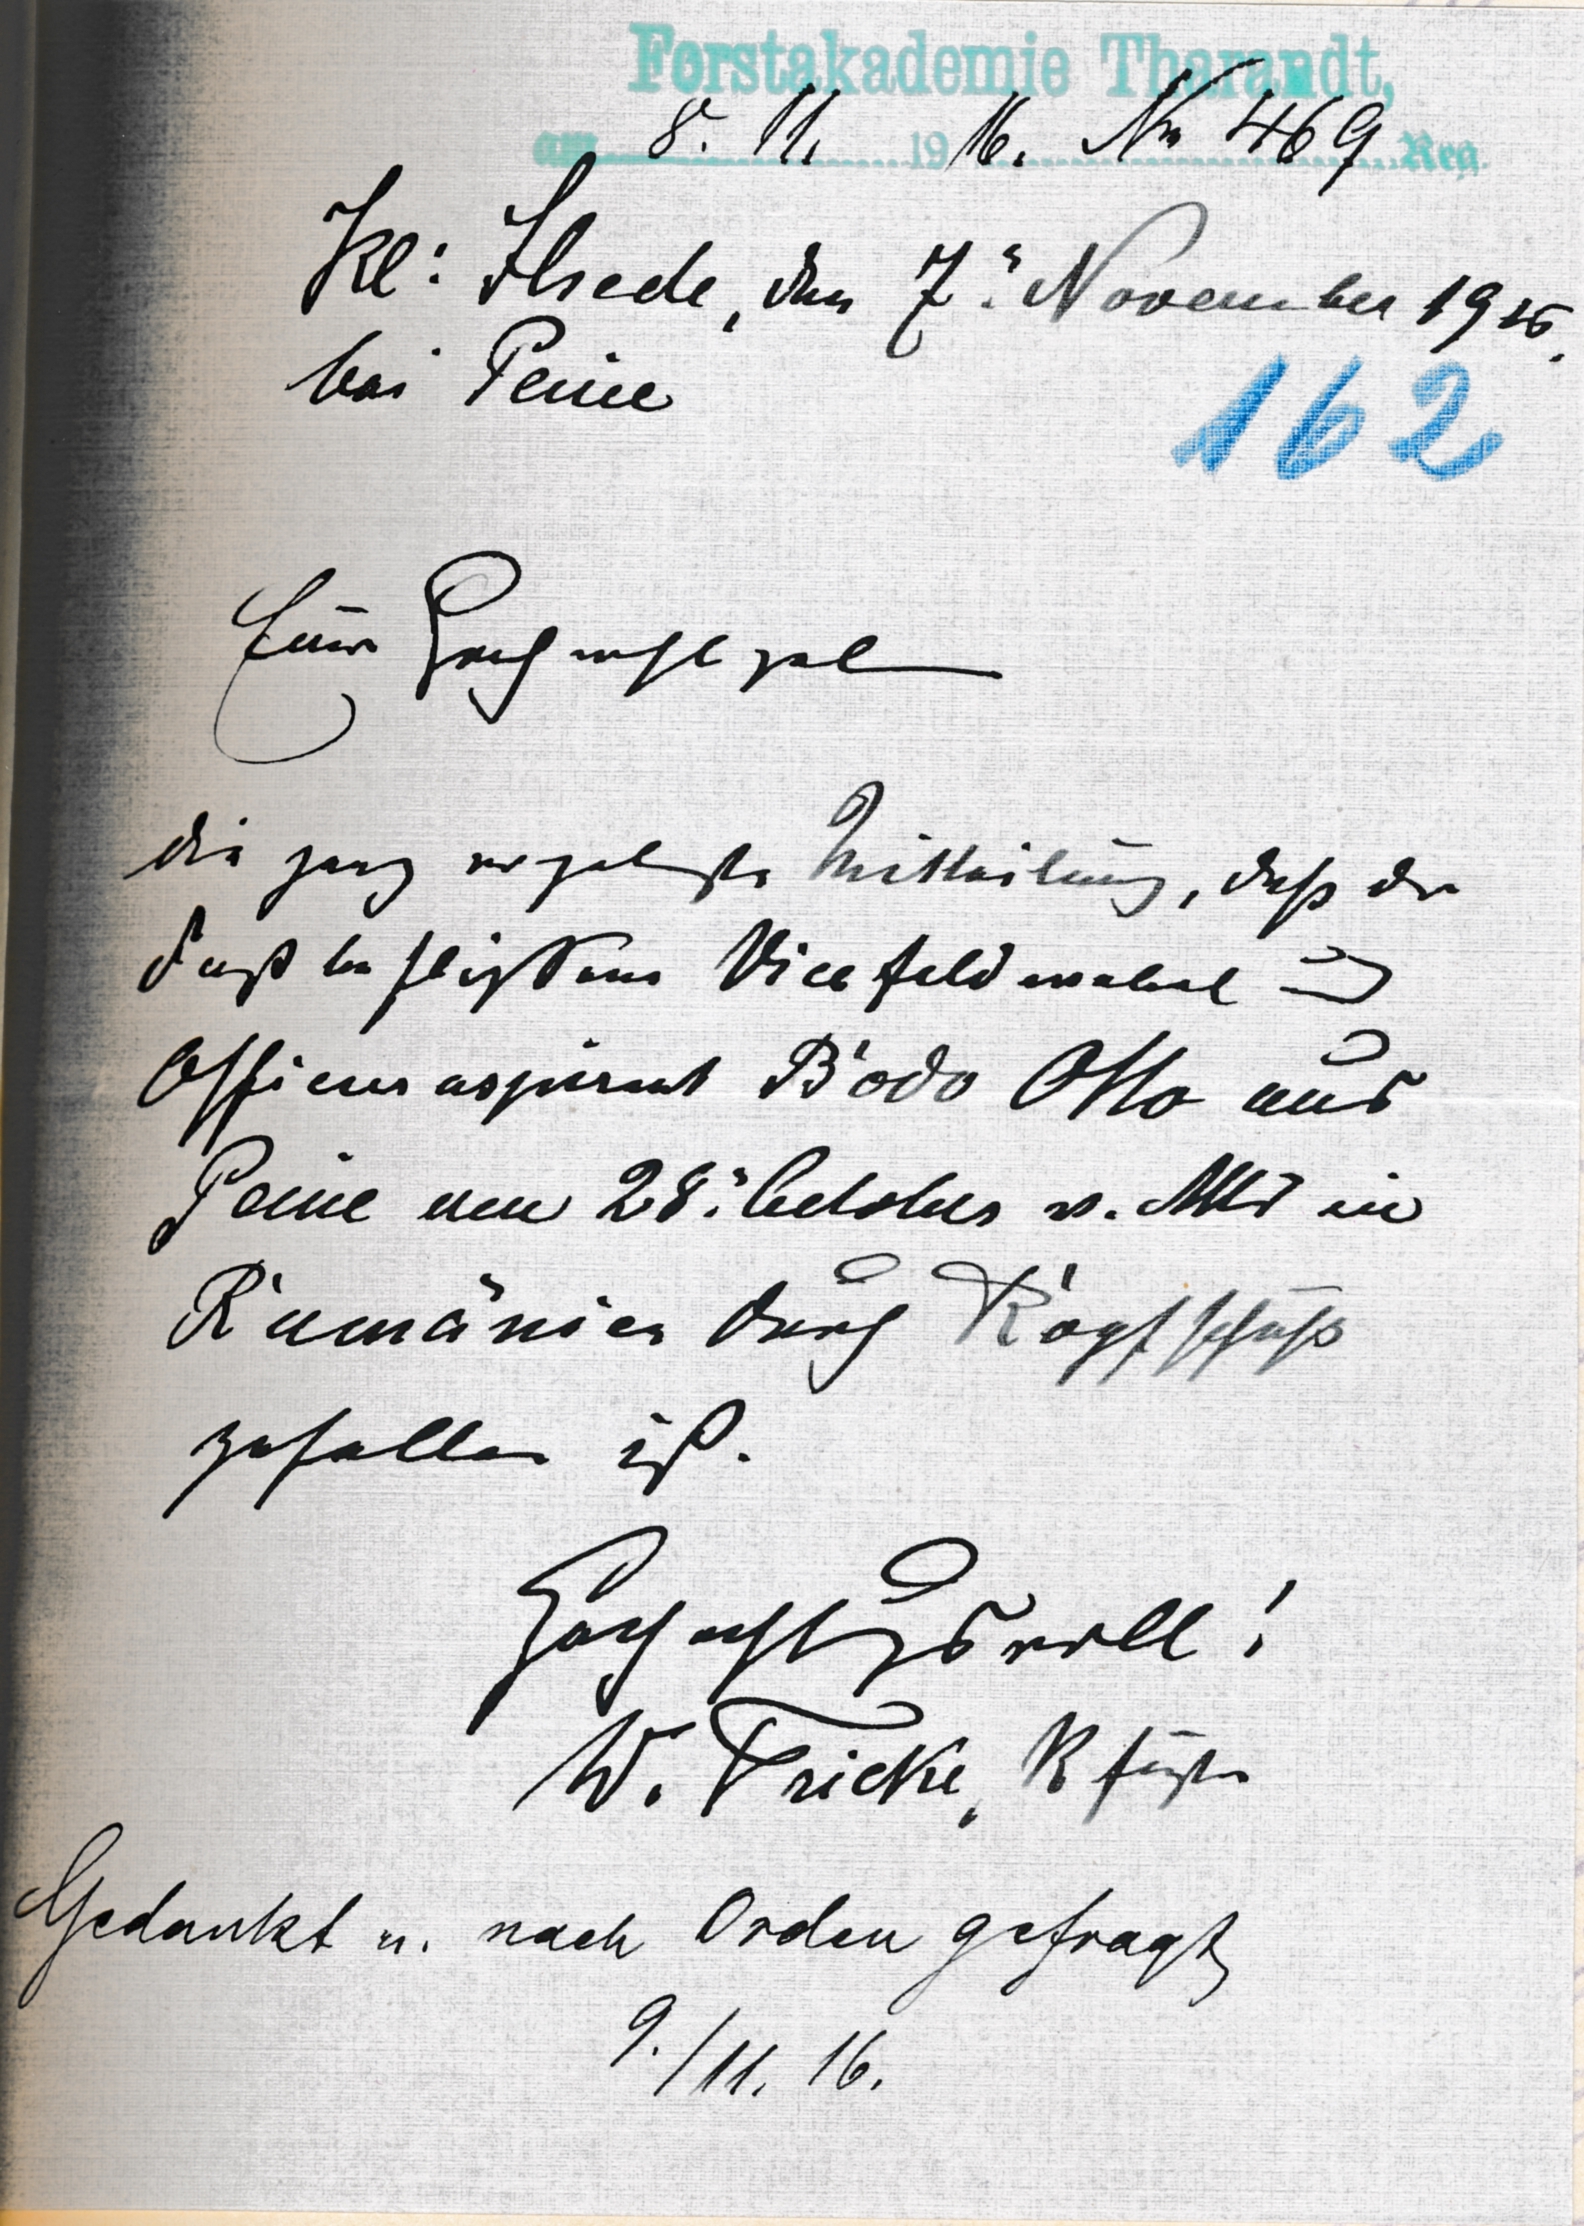 Forstakademie Tharandt,
am 8. 11. 1916. No 469 Reg.
Kl: Ilsede, den 7. November 1916.
bei Peine
162
Euer Hochwohlgeb
die ganz ergebenste Mittheilung, daß der
Forstbeflissene Vicefeldwebel u
Officiersaspirant Bodo Otto aus
Peine am 28. October v. Mts in
Rumänien durch Kopfschuß
gefallen ist.
Hochachtungsvoll!
W. Fricke, Förster
Gedankt u. nach Orden gefragt
9./11. 16.